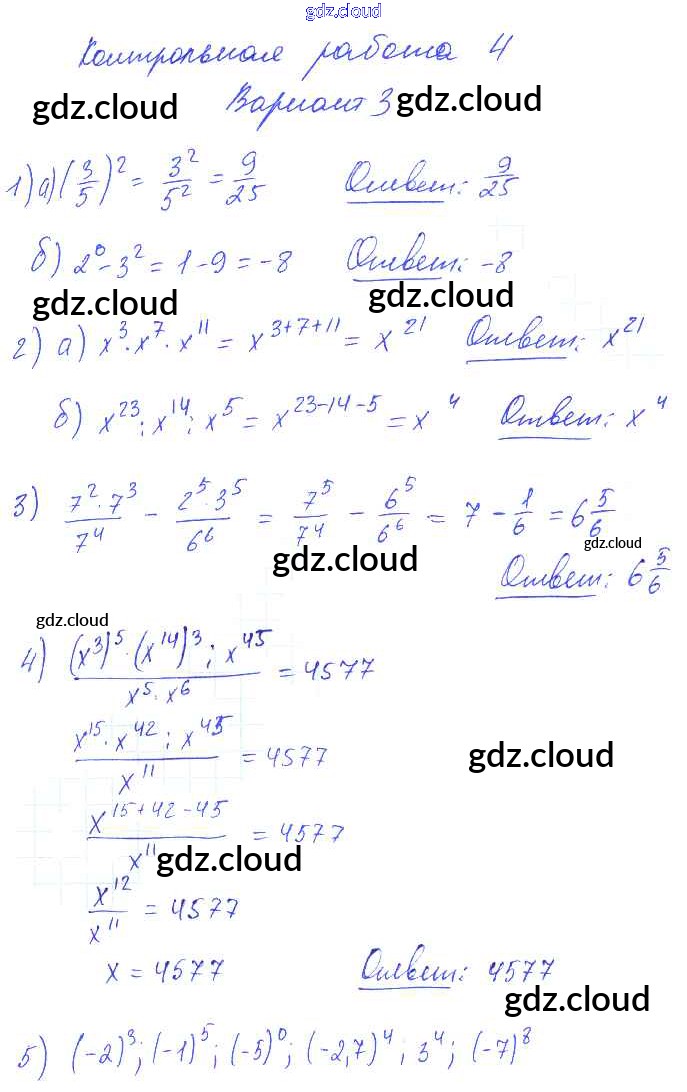 gdz.cloud
Контрольная работа 4
gdz.cloud Вариант 3 gdz.cloud
1) а) (3/5)² = 3²/5² = 9/25 Ответ: 9/25
б) 2⁰ - 3² = 1 - 9 = -8 Ответ: -8
gdz.cloud gdz.cloud
2) а) x³ · x⁷ · x¹¹ = x³⁺⁷⁺¹¹ = x²¹ Ответ: x²¹
б) x²³ : x¹⁴ : x⁵ = x²³⁻¹⁴⁻⁵ = x⁴ Ответ: x⁴
3) 7² · 7³/7⁴ - 2⁵ · 3⁵/6⁶ = 7⁵/7⁴ - 6⁵/6⁶ = 7 - 1/6 = 6 5/6
gdz.cloud gdz.cloud
Ответ: 6 5/6
gdz.cloud
4) (x³)⁵ · (x¹⁴)³ : x⁴⁵/x⁵ · x⁶ = 4577
x¹⁵ · x⁴² : x⁴⁵/x¹¹ = 4577
gdz.cloud
x¹⁵⁺⁴²⁻⁴⁵/x¹¹ = 4577
gdz.cloud
x¹²/x¹¹ = 4577
x = 4577 Ответ: 4577
gdz.cloud
5) (-2)³; (-1)⁵; (-5)⁰; (-2,7)⁴; 3⁴; (-7)⁸